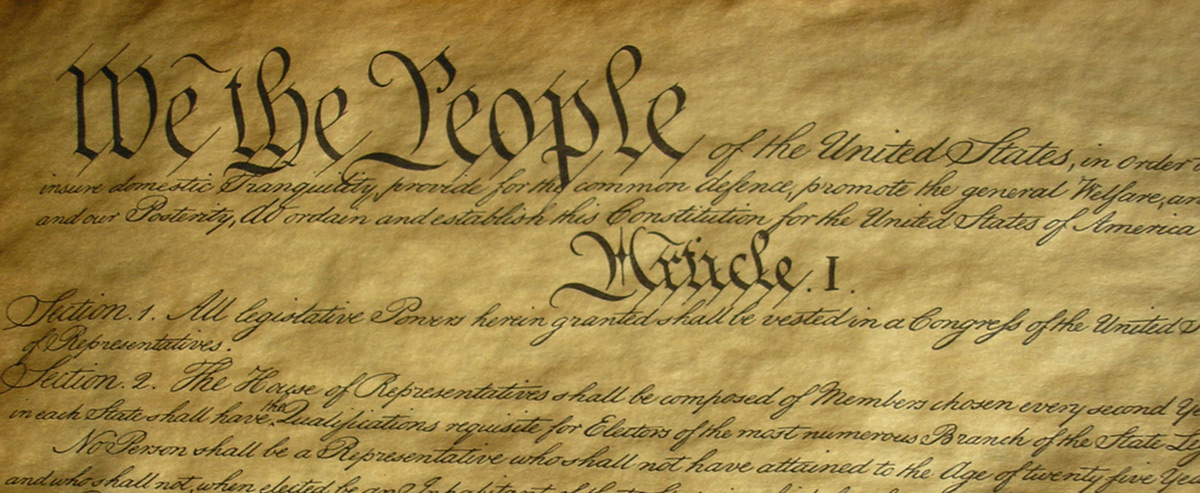 We the People of the United States, in order
insure domestic Tranquility, provide for the common defence, promote the general Welfare, an
and our Posterity, do ordain and establish this Constitution for the United States of America
Article. I.
Section. 1. All legislative Powers herein granted shall be vested in a Congress of the United
of Representatives.
Section. 2. The House of Representatives shall be composed of Members chosen every second Y
in each State shall have the Qualifications requisite for Electors of the most numerous Branch of the State Leg
No Person shall be a Representative who shall not have attained to the Age of twenty five Yea
and who shall not, when elected be an Inhabitant of that